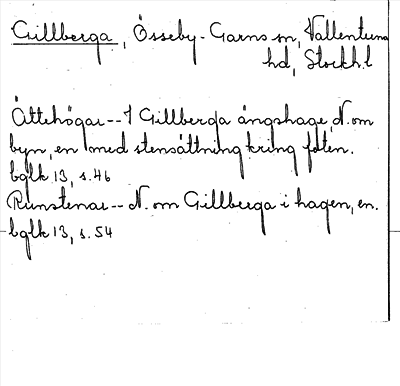 Gillberga, Össeby-Garns sn, Vallentuna
hd, Stockh.l
Ättehögar--I Gillberga ängshage, N. om
byn, en med stensättning kring foten.
bglk 13, s. 46
Runstenar--N. om Gillberga i hagen, en.
bglk 13, s. 54